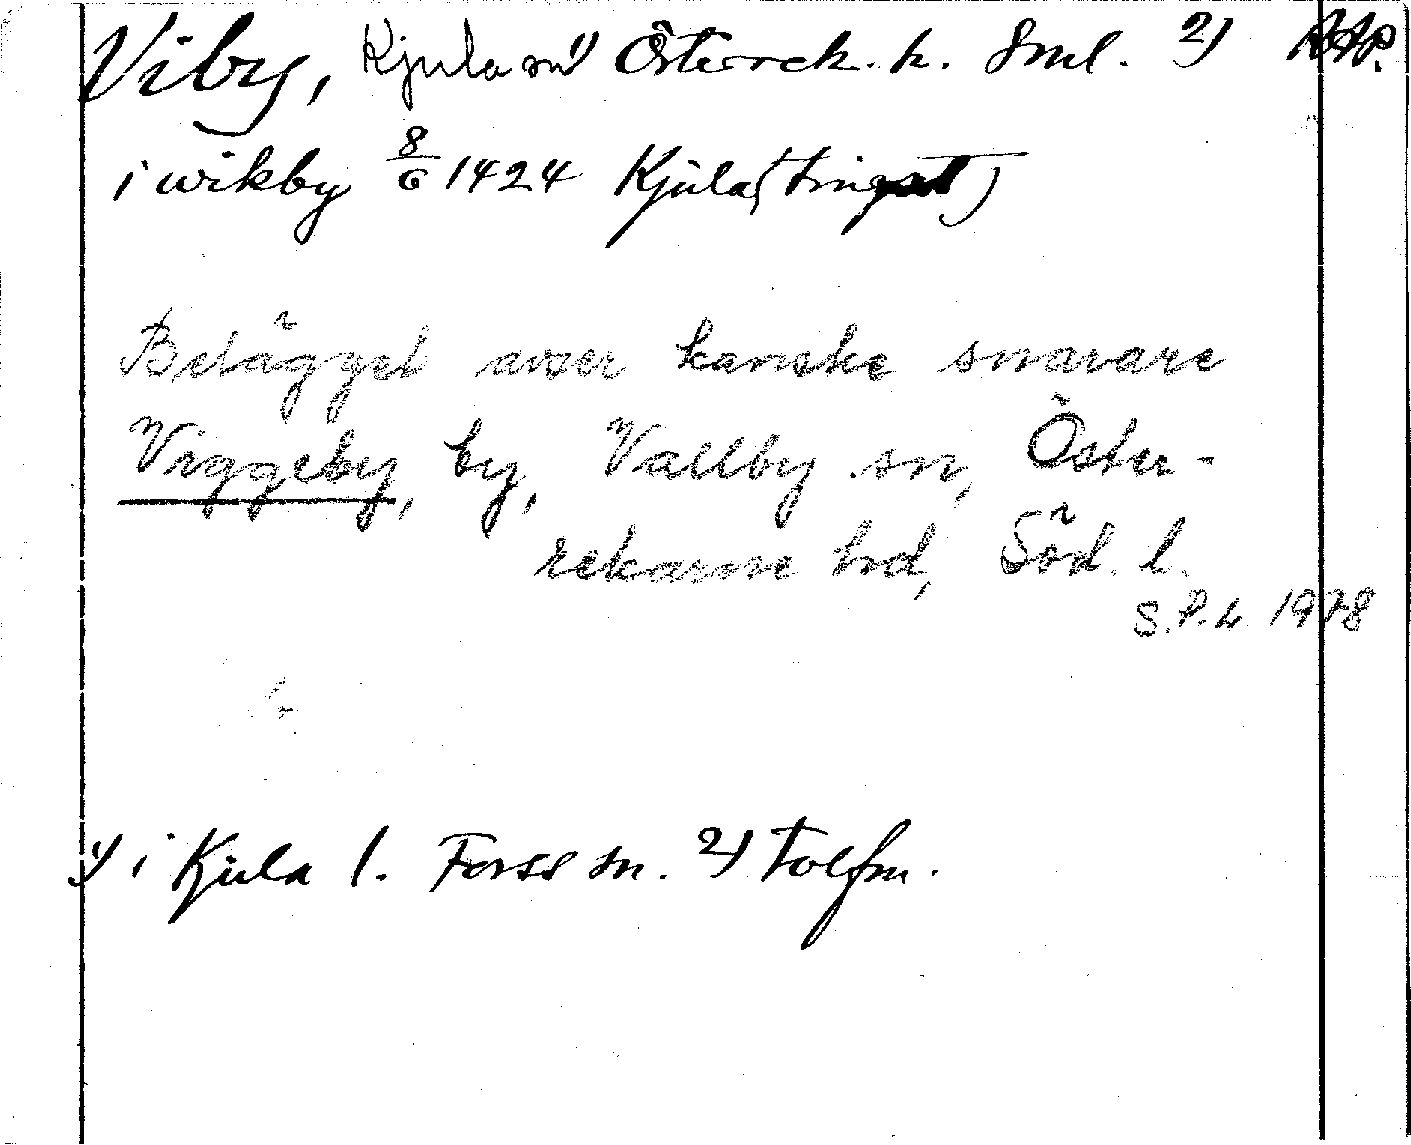 Viby, Kjula sn 1) Österrek. h. Sml. 2) RAP.
i wikby 8/6 1424 Kjula (tingst)
Belägget avser kanske snarare
Viggeby, by, Vallby sn, Öster-
rekarne hd, Söd. l.
S.P.L 1978
1) i Kjula l. Forss sn. 2) Tolfm.